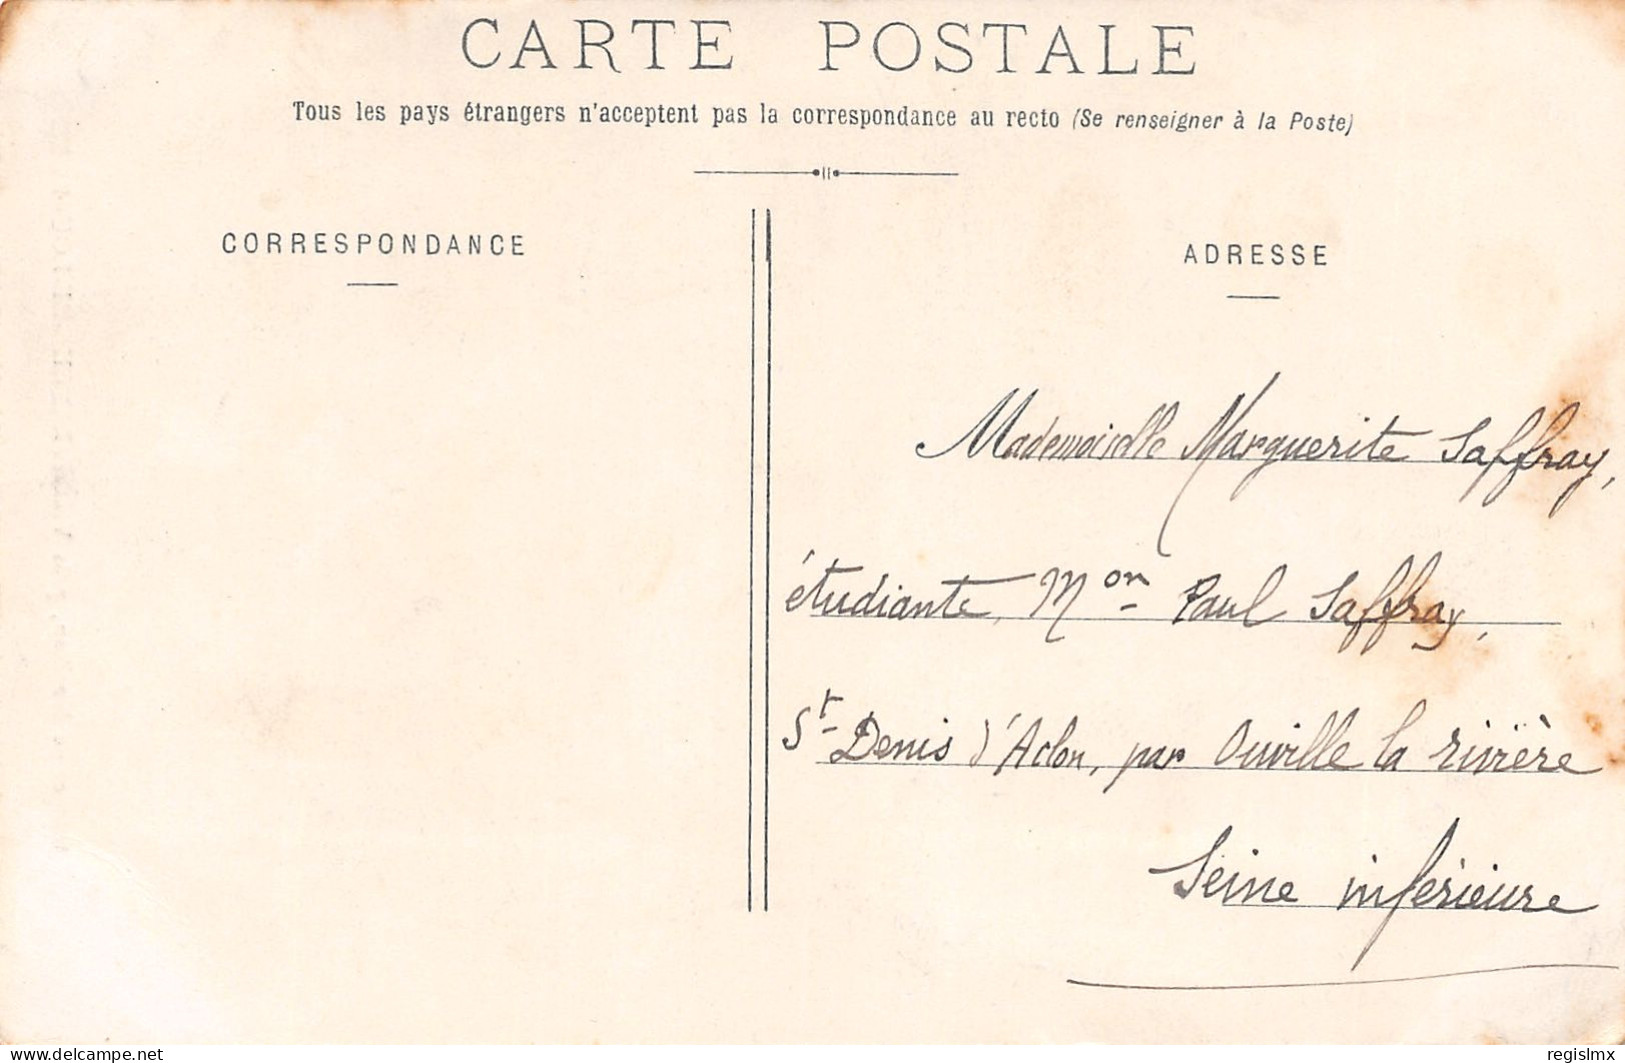 CARTE POSTALE
Tous les pays étrangers n'acceptent pas la correspondance au recto (Se renseigner à la Poste)
CORRESPONDANCE
ADRESSE
Mademoiselle Marguerite Saffray,
étudiante, Mon Paul Saffray,
St Denis d'Aclon, par Ouville la rivière
Seine inférieure
Delcampe.net
regislmx